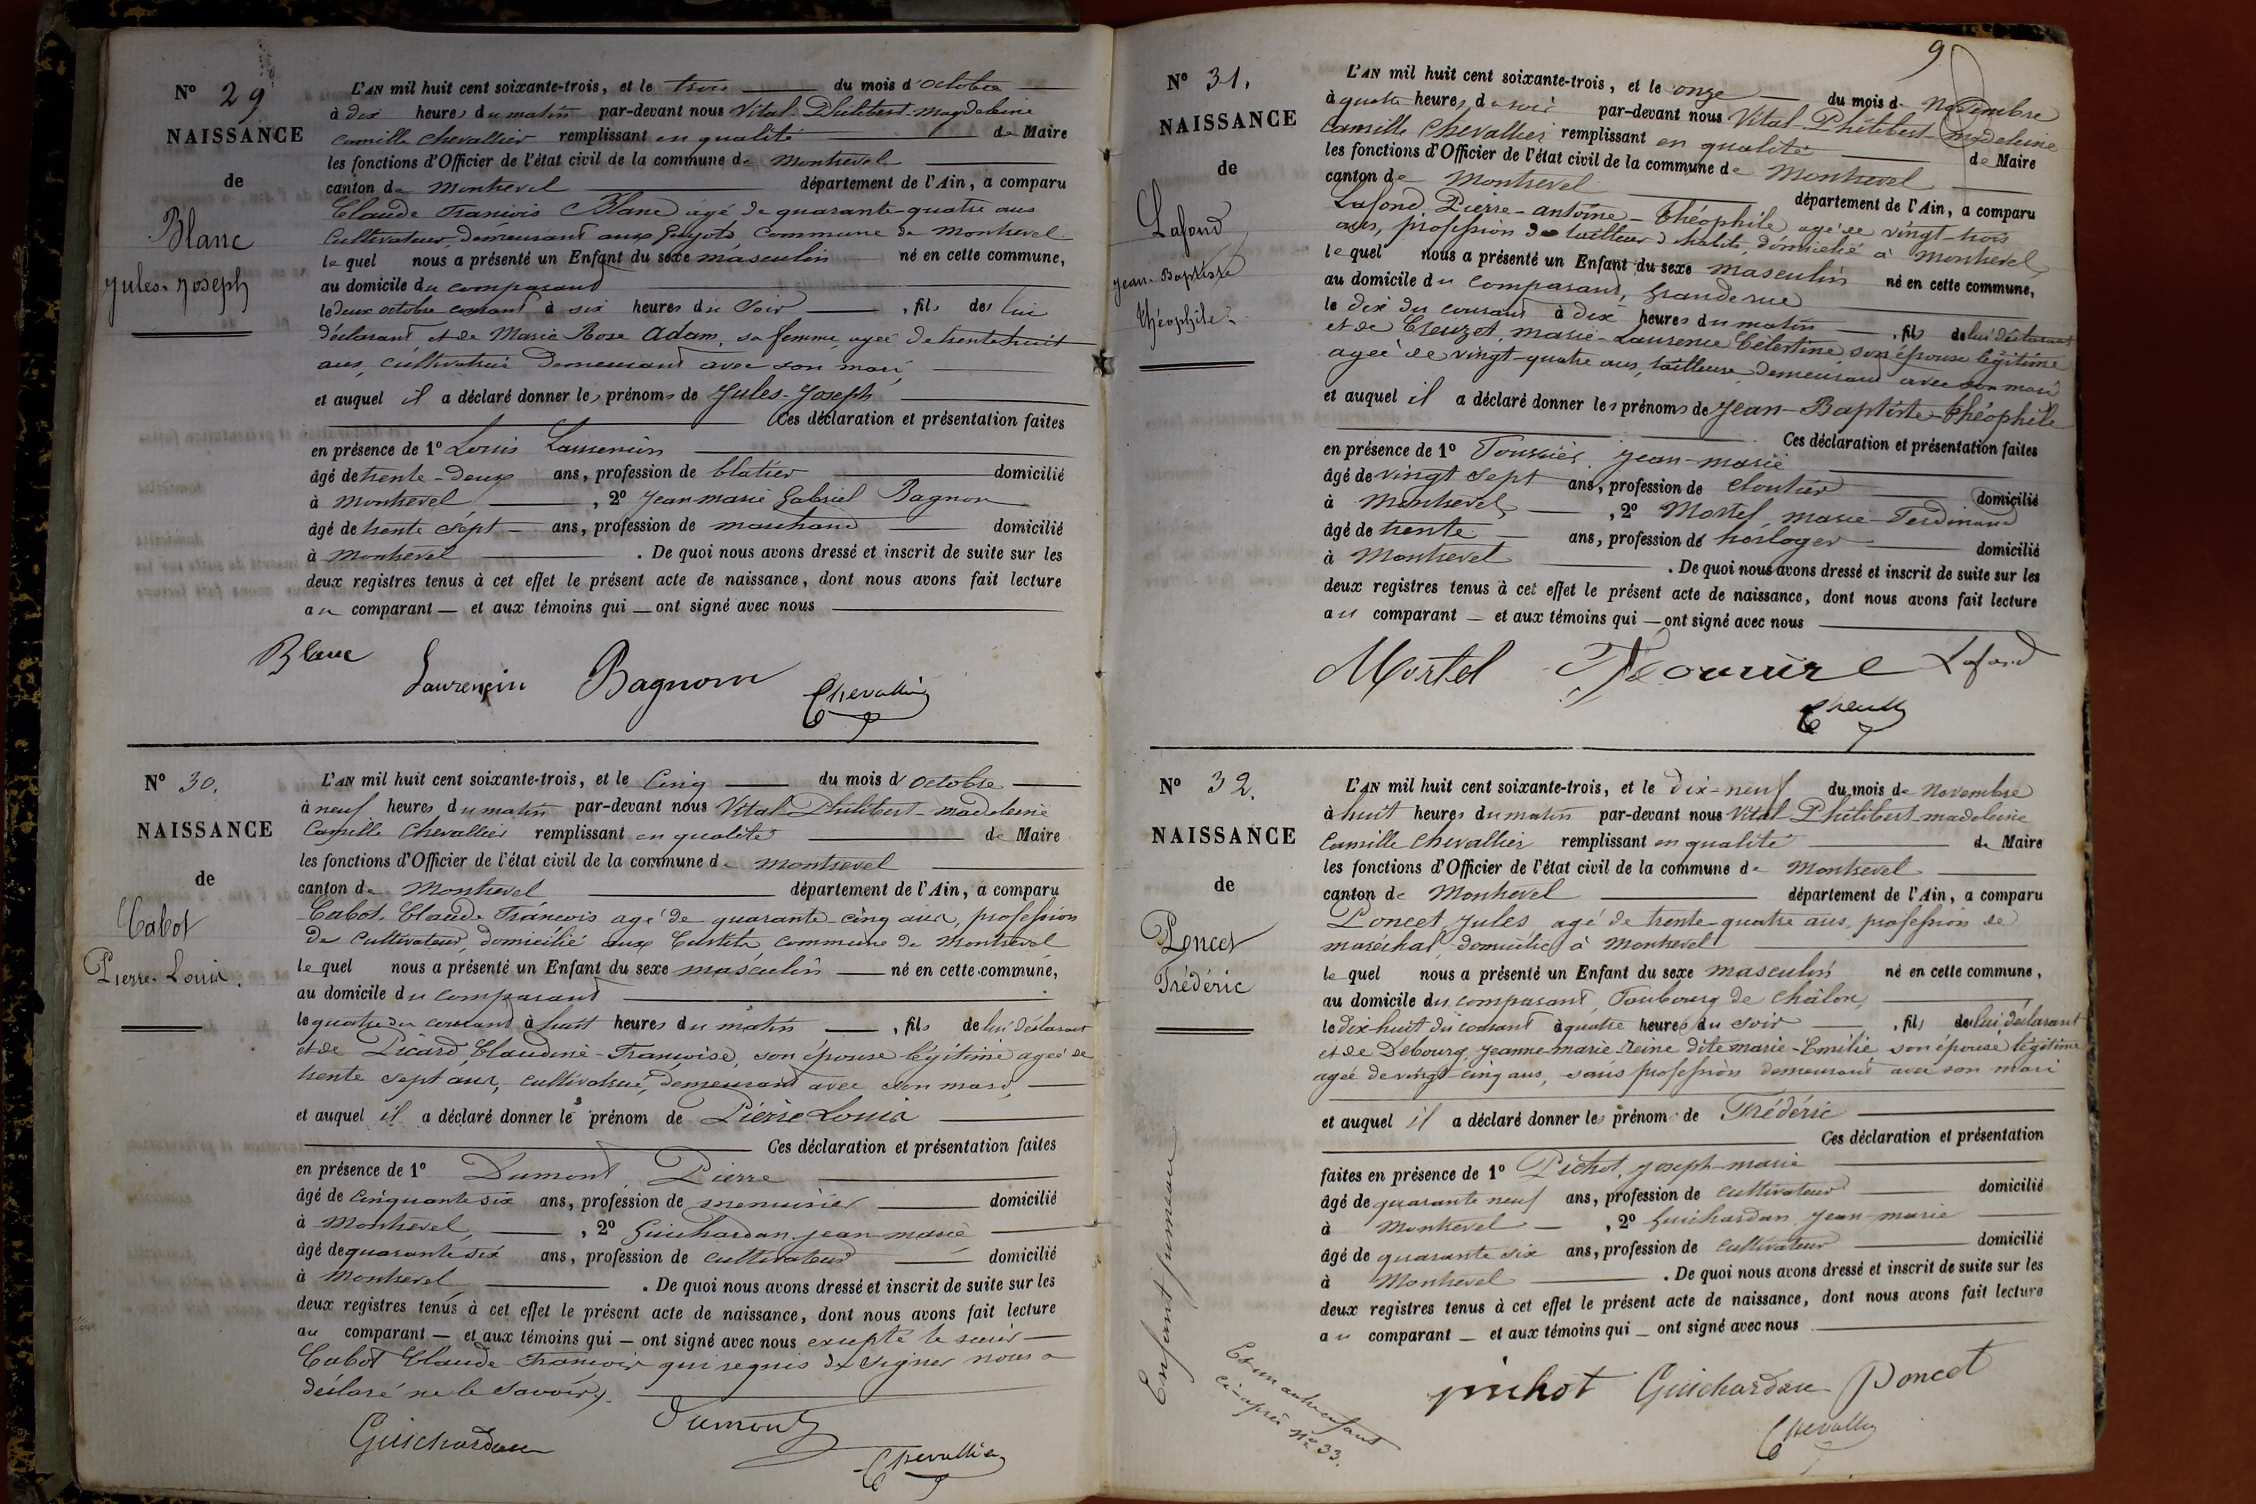 N° 29
NAISSANCE
de
Blanc
Jules-Joseph
L'AN mil huit cent soixante-trois, et le trois du mois d'octobre
à dix heures du matin par-devant nous Vital-Philibert-Magdeleine
Camille Chevallier remplissant en qualité de Maire
les fonctions d'Officier de l'état civil de la commune de Montrevel
canton de Montrevel département de l'Ain, a comparu
Claude François Blanc âgé de quarante-quatre ans
cultivateur, demeurant aux Guyots commune de Montrevel
lequel nous a présenté un Enfant du sexe masculin né en cette commune,
au domicile du comparant
le deux octobre courant à six heures du soir, fils de lui
déclarant et de Marie Rose Adam, sa femme, agée de trente huit
ans, cultivatrice demeurant avec son mari,
et auquel il a déclaré donner les prénoms de Jules-Joseph
Ces déclaration et présentation faites
en présence de 1° Louis Laurencin
âgé de trente-deux ans, profession de blatier domicilié
à Montrevel, 2° Jean marie Gabriel Bagnon
âgé de trente sept ans, profession de marchand domicilié
à Montrevel. De quoi nous avons dressé et inscrit de suite sur les
deux registres tenus à cet effet le présent acte de naissance, dont nous avons fait lecture
au comparant — et aux témoins qui — ont signé avec nous
Blanc Laurencin Bagnon Chevallier
N° 30.
NAISSANCE
de
Cabot
Pierre-Louis.
L'AN mil huit cent soixante-trois, et le cinq du mois d'octobre
à neuf heures du matin par-devant nous Vital-Philibert-Madeleine
Camille Chevallier remplissant en qualité de Maire
les fonctions d'Officier de l'état civil de la commune de Montrevel
canton de Montrevel département de l'Ain, a comparu
Cabot, Claude François agé de quarante-cinq ans, profession
de cultivateur, domicilié aux commune de Montrevel
lequel nous a présenté un Enfant du sexe masculin — né en cette commune,
au domicile du comparant
le quatre du courant à huit heures du matin —, fils de lui déclarant
et de Picard Claudine-Françoise, son épouse légitime agée de
trente sept ans, cultivatrice, demeurant avec son mari,
et auquel il a déclaré donner les prénom de Pierre Louis
Ces déclaration et présentation faites
en présence de 1° Dumont Pierre
âgé de cinquante six ans, profession de menuisier domicilié
à Montrevel, 2° Guichardan jean-marie
âgé de quarante six ans, profession de cultivateur domicilié
à Montrevel. De quoi nous avons dressé et inscrit de suite sur les
deux registres tenus à cet effet le présent acte de naissance, dont nous avons fait lecture
au comparant — et aux témoins qui — ont signé avec nous excepté le sieur
Cabot Claude-François qui requis de signer nous a
déclaré ne le savoir.
Guichardan Dumont Chevallier
9
N° 31.
NAISSANCE
de
Lafond
Jean-Baptiste
Théophile
L'AN mil huit cent soixante-trois, et le onze du mois de Novembre
à quatre heures du soir par-devant nous Vital-Philibert-Madeleine
Camille Chevallier remplissant en qualité de Maire
les fonctions d'Officier de l'état civil de la commune de Montrevel
canton de Montrevel département de l'Ain, a comparu
Lafond, Pierre-antoine-Théophile agé de vingt-trois
ans, profession de tailleur d'habits, domicilié à Montrevel,
lequel nous a présenté un Enfant du sexe masculin né en cette commune,
au domicile du comparant, Grande rue
le dix du courant à dix heures du matin, fils de lui déclarant
et de Creuzet, marie-Laurence Célestine, son épouse légitime
agée de vingt-quatre ans, tailleuse, demeurant avec son mari
et auquel il a déclaré donner les prénoms de Jean-Baptiste-Théophile
Ces déclaration et présentation faites
en présence de 1° jean-marie
âgé de vingt sept ans, profession de cloutier domicilié
à Montrevel, 2° Mortel, marie-Ferdinand
âgé de trente ans, profession de horloger domicilié
à Montrevel. De quoi nous avons dressé et inscrit de suite sur les
deux registres tenus à cet effet le présent acte de naissance, dont nous avons fait lecture
au comparant — et aux témoins qui — ont signé avec nous
Mortel Lafond
N° 32.
NAISSANCE
de
Poncet
Frédéric
Enfant jumeau
Et un autre enfant
ci-après N° 33.
L'AN mil huit cent soixante-trois, et le dix-neuf du mois de Novembre
à huit heures du matin par-devant nous Vital Philibert-madeleine
Camille Chevallier remplissant en qualité de Maire
les fonctions d'Officier de l'état civil de la commune de Montrevel
canton de Montrevel département de l'Ain, a comparu
Poncet Jules agé de trente-quatre ans, profession de
maréchal, domicilié à Montrevel
lequel nous a présenté un Enfant du sexe masculin né en cette commune,
au domicile du comparant Faubourg de Châlon,
le dix huit du courant à quatre heures du soir, fils de lui déclarant
et de Debourg, Jeanne-marie-Reine dite marie-Emilie, son épouse légitime
agée de vingt-cinq ans, sans profession demeurant avec son mari
et auquel il a déclaré donner les prénom de Frédéric
Ces déclaration et présentation
faites en présence de 1° Pichot, joseph-marie
âgé de quarante neuf ans, profession de cultivateur domicilié
à Montrevel —, 2° Guichardan, jean-marie
âgé de quarante six ans, profession de cultivateur domicilié
à Montrevel. De quoi nous avons dressé et inscrit de suite sur les
deux registres tenus à cet effet le présent acte de naissance, dont nous avons fait lecture
au comparant — et aux témoins qui — ont signé avec nous
pichot Guichardan Poncet
Chevallier